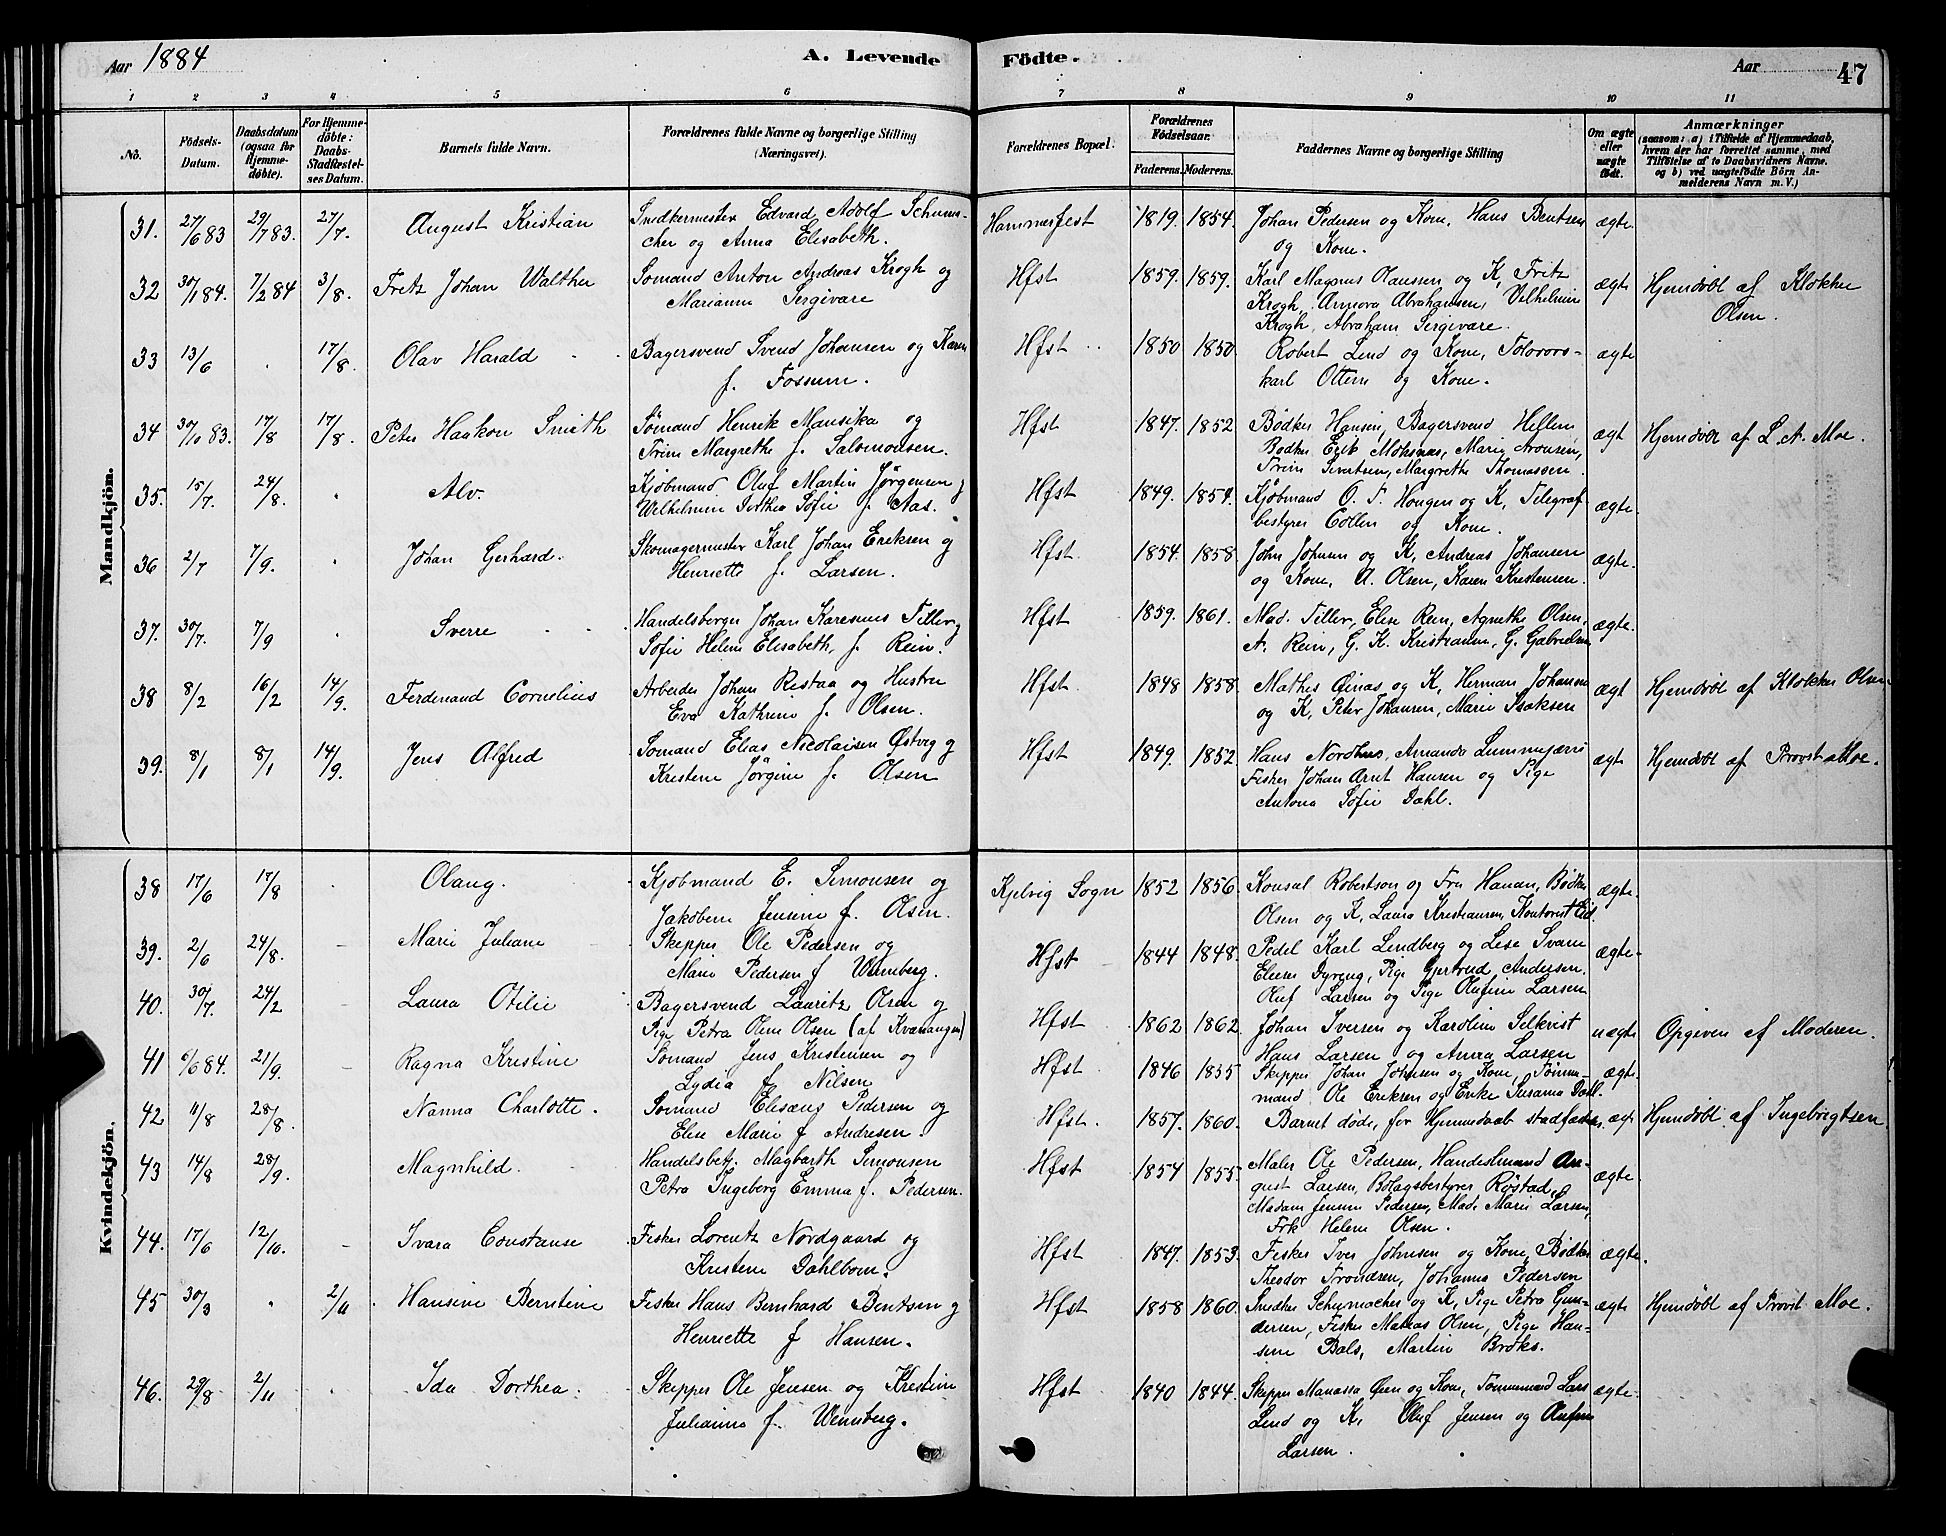 Aar 1884
A. Levende Födte.
Aar 47
1 2 3 4 5 6 7 8 9 10 11
No.
Födsels-Datum.
Daabsdatum (ogsaa for Hjemme-döbte).
For Hjemme-döbte: Daabs-Stadfæstel-ses Datum.
Barnets fulde Navn.
Forældrenes fulde Navne og borgerlige Stilling (Næringsvei).
Forældrenes Bopæl.
Forældrenes Födselsaar.
Faderens. Moderens.
Faddernes Navne og borgerlige Stilling
Om ægte eller uægte födt.
Anmærkninger
(saasom: a) i Tilfælde af Hjemmedaab,
hvem der har forrettet samme, med
Tilföielse af to Daabsvidners Navne.
og b) ved uægtefödte Börn An-
melderens Navn m. V.)
Mandkjön.
31. 27/6 83 29/7 83. 27/7. August Kristian Snedkermester Edvard Adolf Schuma- Hammerfest 1819. 1854. Johan Pedersen og Kone, Hans Bentsen ægte
cher og Anna Elisabeth. og Kone.
32 30/1 84. 7/2 84 3/8. Fretz Johan Walther Sømand Anton Andreas Krogh og Hfst 1859. 1859. Karl Magnus Olaussen og K, Fritz ægte Hjemdøbt af Klokker
Marianne Sergivare Krogh, Abrahamsen, Vilhelmine Olsen.
Krogh, Abraham Sergivare.
33 13/6 . 17/8. Olav Harald Bagersvend Svend Johansen og Karen Hfst 1850 1850. Robert Lind og Kone, ægte
f. Fossum. karl Ottem og Kone.
34 30/10 83. 17/8 17/8. Peter Haakon Smith Sømand Henrik Mansika og Hfst 1847. 1852 Bødker Hansen, Bagersvend Hellem, ægt Hjemdøbt af L. A. Moe.
Trine Margrethe f. Salomonsen. Bødker Erik Moksnes, Marie Aronsen,
Trine Sivertsen, Margrethe Thomassen
35. 15/7. 24/8. . Alv. Kjøbmand Oluf Martin Jørgensen og Hfst 1849. 1854. Kjøbmand O. T. Hougen og K, Telegraf- ægte.
Wilhelmine Dorthea Sofie f. Aas. bestyrer Collin og Kone.
36 2/7 7/9. . Johan Gerhard. Skomagermester Karl Johan Eriksen og Hfst. 1854. 1858 John Johnsen og K, Andreas Johansen ægte.
Henriette f. Larsen. og Kone, A. Olsen, Karen Kristensen.
37. 30/7. 7/9 . Sverre Handelsborger Johan Tiller og Hfst 1859. 1861. Mad. Tiller, Elise Rein, Agnethe Olsen, ægte.
Sofie Helene Elisabeth, f. Rein. A. Rein, G. K. Kristiansen, G. Gabrielsen
38 8/2 16/2 14/9. Ferdinand Cornelius Arbeider Johan Restaa og Hustru Hfst. 1848 1858. Mathis Oinas og K, Herman Johansen ægt Hjemdøbt af Klokker Olsen
Eva Kathrine f. Olsen. og K, Peter Johansen, Marie Isaksen
39. 8/1 8/1 14/9. Jens Alfred Sømand Elias Nicolaisen Østvig og Hfst 1849. 1852 Hans Nordhus, Amanda Lummejærvi ægt Hjemdøbt af Provst Moe.
Kristine Jørgine f. Olsen Fisker Johan Arnt Hansen og Pige
Antona Sofie Dahl.
Kvindekjön.
38 17/6 17/8 . Olaug. Kjøbmand E. Simonsen og Kjelvig Sogn 1852 1856. Konsul Robertson og Fru Hanan, Bødker ægte.
Jakobine Jensine f. Olsen. Olsen og K, Laura Kristiansen, Kontorist Eid.
39. 2/6 24/8. - Marie Juliane Skipper Ole Pedersen og Hfst 1844 1848. Pedel Karl Lindberg og Lise Svane ægte.
Marie Pedersen f Wennberg. Dyreng, Pige Gjertrud Andersen.
Oluf Larsen og Pige Olufine Larsen
40. 30/7. 24/2 - Laura Otilie Bagersvend Lauritz Olsen og Hfst 1862 1862. Johan Iversen og Karoline Selkvist uægte Opgiven af Moderen.
Pige Petra Oline Olsen (af Kvænangen) Hans Larsen og Anna Larsen
41 6/6 84. 21/9. - Ragna Kristine Sømand Jens Kristensen og Hfst. 1846 1855 Skipper Johan Johnsen og Kone, Tømmer- ægte.
Lydia f. Nilsen mand Ole Eriksen og Enke Susanna Dahl.
42 11/8 28/8. Nanna Charlotte. Sømand Eliseus Pedersen og Hfst. 1857. 1860. Barnet døde, før Hjemmedaab stadfæstes. ægt Hjemdøbt af Ingebrigtsen
Elen Marie f Andresen.
43 14/8 28/9. Magnhild. Handelsbetj. Magbarth Simonsen Hfst 1854 1855. Maler Ole Pedersen, Handelsmand Au- ægte.
Petra Ingeborg Emma f. Pedersen. gust Larsen, Bolagsbestyrer Røstad,
Madam Jensine Pedersen, Mad. Marie Larsen,
Frk Helene Olsen.
44. 17/6 12/10. - Ivara Constanse Fisker Lorentz Nordgaard og Hfst 1847. 1853. Fisker Iver Johnsen og Kone, Bødker ægte.
Kristine Dahlbom. Theodor Trondsen, Johanna Pedersen
45 30/3 . 2/11 . Hansine Berntine Fisker Hans Bernhard Bentsen og Hfst 1858 1860. Snedker Schumacher og K, Pige Petra Gun- ægte Hjemdøbt af Provst Moe.
Henriette f Hansen. dersen, Fisker Mathias Olsen, Pige Han-
sine Bals, Martin Broks.
46. 29/8 2/11 . Ida Dorthea. Skipper Ole Jensen og Kristine Hfst 1840 1844. Skipper Manassa Øien og Kone, Tømmermand Lars ægte.
Julianna f. Wennberg. Lind og K, Oluf Jensen og Olufine
Larsen.